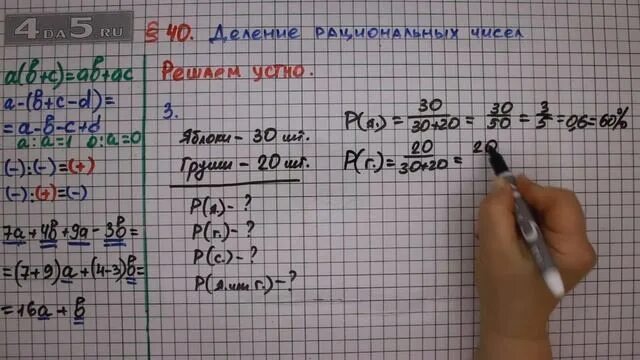 4DA5.RU
§ 40. Деление рациональных чисел
Решаем устно.
a(b+c)=ab+ac
a-(b+c-d)=
=a-b-c+d
a:a=1 0:a=0
(-):(-)=(+)
(-):(+)=(-)
7a+4b+9a-3b=
=(7+9)a+(4-3)b=
=16a+b
3.
Яблоки - 30 шт.
Груши - 20 шт.
P(я)-?
P(г.)-?
P(с.)-?
P(я.или г.)-?
P(я.)=30/(30+20)=30/50=3/5=0,6=60%
P(г.)=20/(30+20)=20